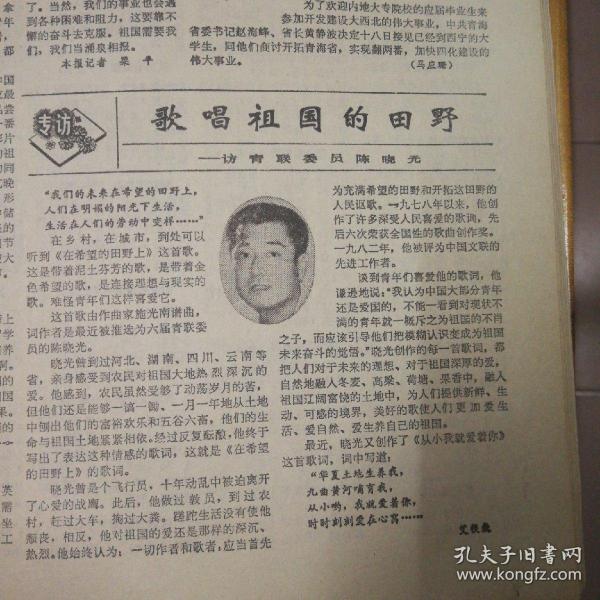 了。当然，我们的事业也会遇
到各种困难和阻力，这要靠不
懈的奋斗去克服。祖国需要我
们，我们当涌泉相报。
本报记者 梁 平
为了欢迎内地大专院校的应届毕业生来
参加开发建设大西北的伟大事业，中共青海
省委书记赵海峰、省长黄静波决定十八日接见已经到西宁的大
学生，同他们商讨开拓青海省，实现翻两番，加快四化建设的
伟大事业。
专访
歌唱祖国的田野
——访青联委员陈晓光
“我们的未来在希望的田野上，
人们在明媚的阳光下生活，
生活在人们的劳动中变样……”
在乡村，在城市，到处可以
听到《在希望的田野上》这首歌。
这是带着泥土芬芳的歌，是带着金
色希望的歌，是连接理想与现实的
歌。难怪青年们这样喜爱它。
这首歌由作曲家施光南谱曲，
词作者是最近被推选为六届青联委
员的陈晓光。
晓光曾到过河北、湖南、四川、云南等
省，亲身感受到农民对祖国大地热烈深沉的
爱。他感到，农民虽然受够了动荡岁月的苦，
但他们还是能够一镐一锄、一月一年地从土地
中刨出他们的富裕欢乐和五谷六畜，他们的生
命与祖国土地紧紧相依。经过反复酝酿，他终于
写出了表达这种情感的歌词，这就是《在希望
的田野上》的歌词。
晓光曾是个飞行员，十年动乱中被迫离开
了心爱的战鹰。此后，他做过教员，到过农
村，赶过大车，掏过大粪。蹉跎生活没有使他
颓丧，相反，他对祖国的爱还是那样的深沉、
热烈。他始终认为：一切作者和歌者，应当首先
为充满希望的田野和开拓这田野的
人民讴歌。一九七八年以来，他创
作了许多深受人民喜爱的歌词，先
后六次荣获全国性的歌曲创作奖。
一九八二年，他被评为中国文联的
先进工作者。
谈到青年们喜爱他的歌词，他
谦逊地说：“我认为中国大部分青年
还是爱国的，不能一看到对现状不
满的青年就一概斥之为祖国的不肖
之子，而应该引导他们把模糊认识变成为祖国
未来奋斗的觉悟。”晓光创作的每一首歌词，都
把人们对于未来的理想、对于祖国深厚的爱，
自然地融入冬麦、高粱、荷塘、果香中，融入
祖国辽阔富饶的土地中，为人们提供新鲜、生
动、可感的境界，美好的歌使人们更加爱生
活、爱自然、爱生养自己的祖国。
最近，晓光又创作了《从小我就爱着你》
这首歌词，词中写道：
“华夏土地生养我，
九曲黄河哺育我，
从小哟，我就爱着你，
时时刻刻爱在心窝……”
孔夫子旧书网
www.kongfz.com